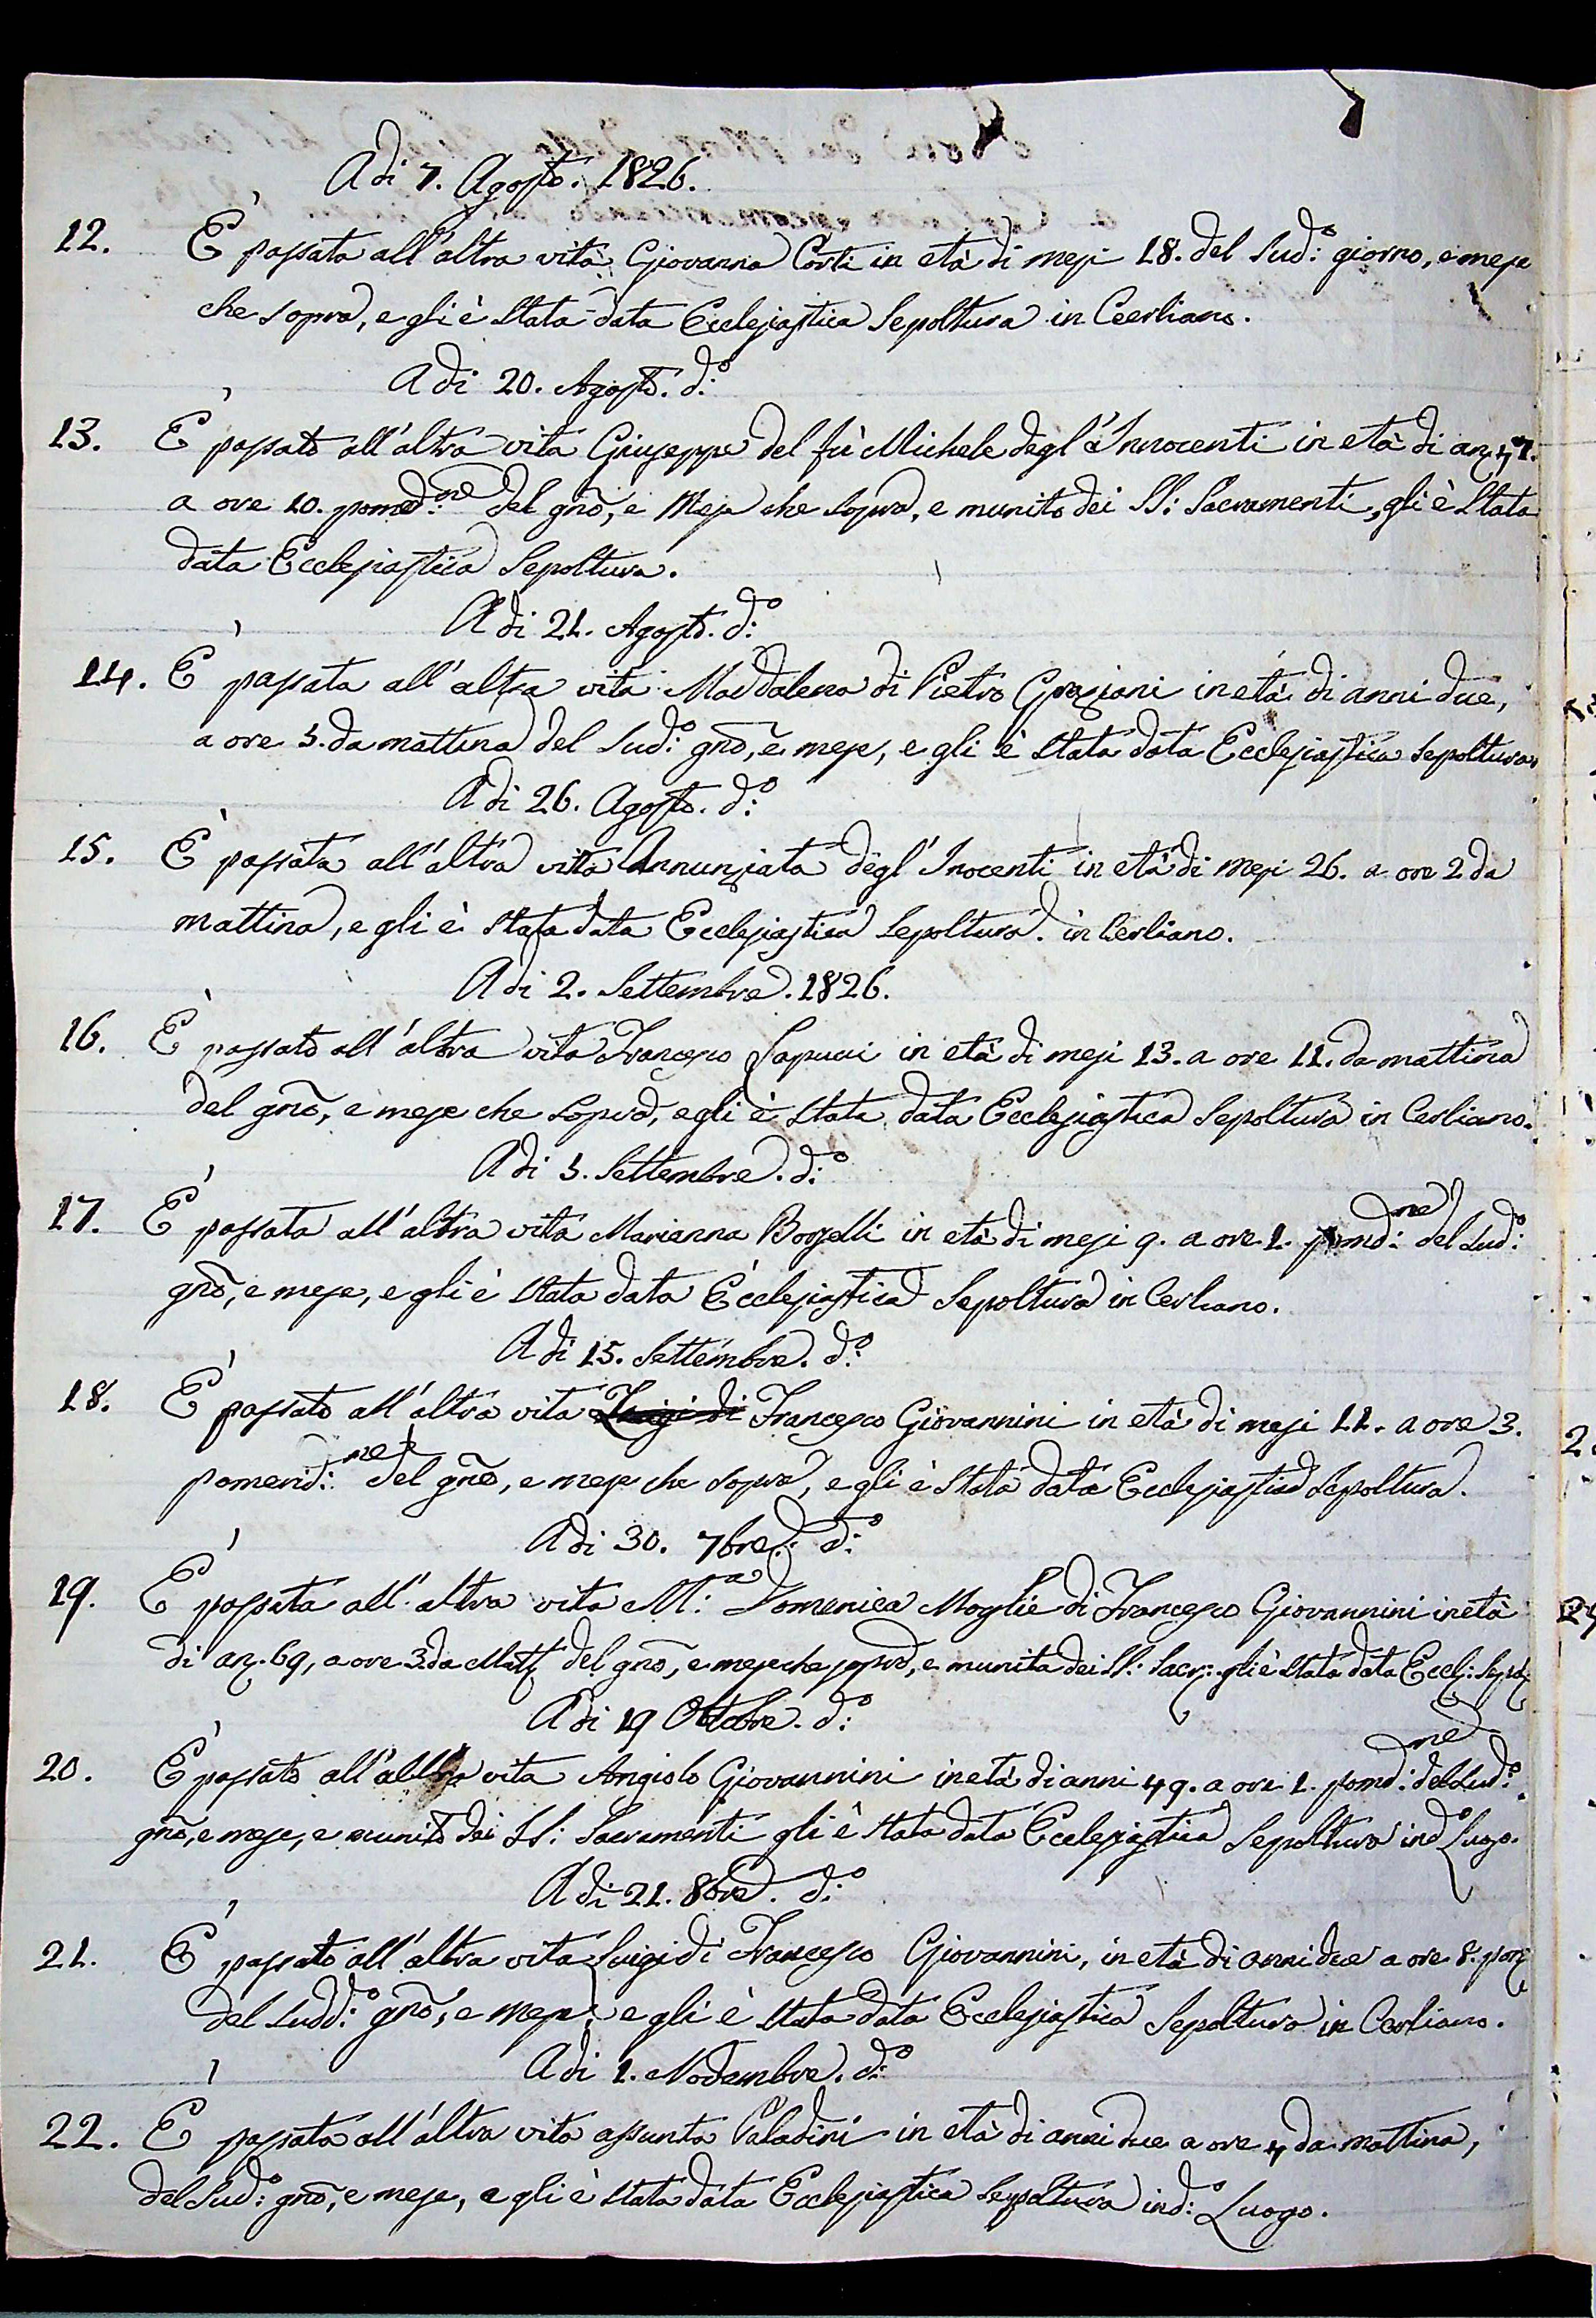 A di 7. Agosto. 1826.
12. E' passata all'altra vita Giovanna Corti in età di mesi 18. del Sud:º giorno, e mese
che sopra, e gli è stata data Ecclesiastica Sepoltura in Ceerliano.
A di 20. Agosto. d:º
13. E' passato all'altra vita Giuseppe del fù Michele degl'Innocenti in età di an: 47.
a ore 10. pomed:ne del gño, e Mese che sopra, e munito dei SS: Sacramenti, gli è stata
data Ecclesiastica Sepoltura.
A di 21. Agosto. d:º
14. E' passata all'altra vita Maddalena di Pietro Graziani in età di anni due,
a ore 5. da mattina del Sud:º gño, e mese, e gli è stata data Ecclesiastica Sepoltura.
A di 26. Agosto. d:º
15. E' passata all'altra vita Annunziata degl'Inocenti in età di Mesi 26. a ore 2 da
mattina, e gli è stata data Ecclesiastica Sepoltura. in Cerliano.
A di 2. Settembre. 1826.
16. E' passato all'altra vita Francesco Sapucci in età di mesi 13. a ore 11. da mattina
del gño, e mese che sopra, e gli è stata data Ecclesiastica Sepoltura in Cerliano.
A di 5. Settembre. d:º
17. E' passata all'altra vita Marianna Borselli in età di mesi 9. a ore 1. pomd:ne del Sud:º
gño, e mese, e gli è stata data Ecclesiastica Sepoltura in Cerliano.
A di 15. Settembre. d:º
18. E' passato all'altra vita Luigi di Francesco Giovannini in età di mesi 11. a ore 3.
pomerid:ne del gño, e mese che sopra, e gli è stata data Ecclesiastica Sepoltura.
A di 30. 7bre: d:º
19. E' passata all'altra vita M:a Domenica Moglie di Francesco Giovannini in età
di an: 69, a ore 3. da Matt: del gño, e mese che sopra, e munita dei SS: Sacr: gli è stata data Eccl: Sepol:
A di 19 Ottobre. d:º
20. E' passato all'altra vita Angiolo Giovannini in età di anni 49. a ore 1. pomd:ne del Sud:º
gño, e mese, e munito dei SS: Sacramenti gli è stata data Ecclesiastica Sepoltura in dº Luogo.
A di 21. 8bre. d:º
21. E' passato all'altra vita Luigi di Francesco Giovannini, in età di anni due a ore 8. pom:
del Sudd:º gño, e mese, e gli è stata data Ecclesiastica Sepoltura in Cerliano.
A di 1. Novembre. d:º
22. E' passata all'altra vita assunta Paladini in età di anni due a ore 4 da mattina,
del Sud:º gño, e mese, e gli è stata data Ecclesiastica Sepoltura in d:º Luogo.